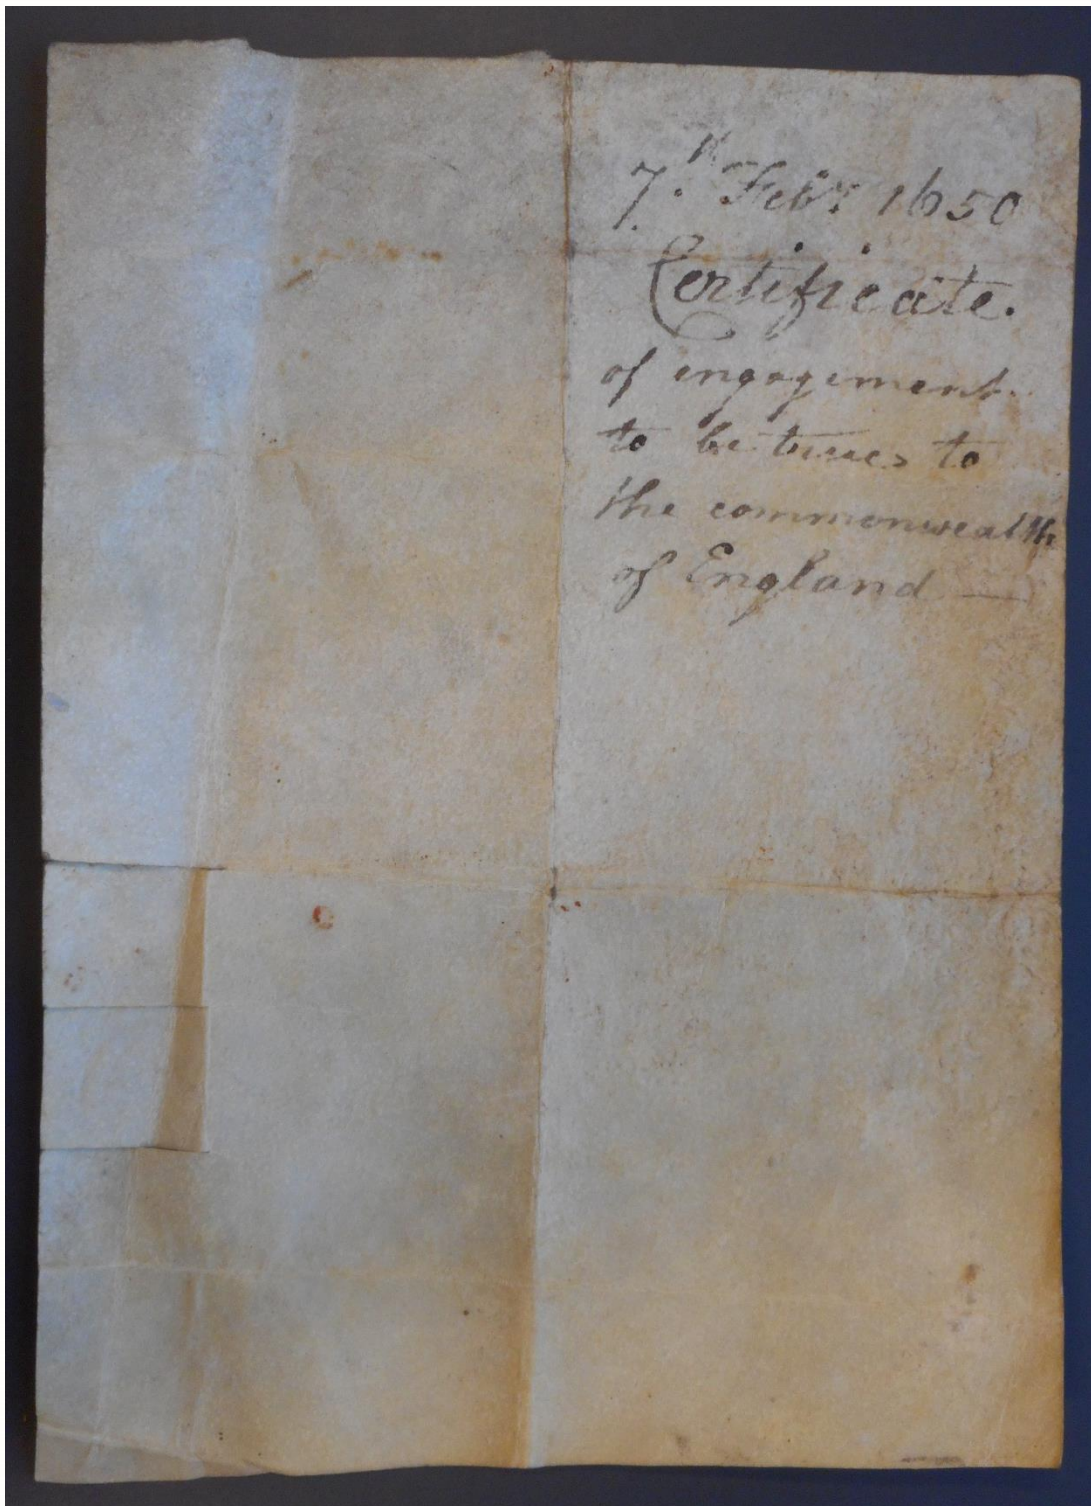 7.th Feby 1650
Certificate.
of engagement.
to be true to
the commonwealth
of England —